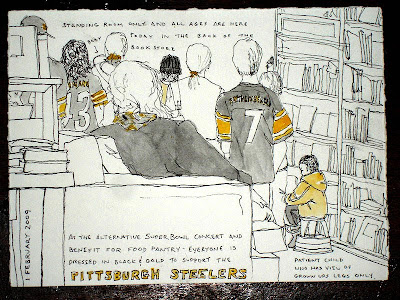 STANDING ROOM ONLY AND ALL AGES ARE HERE
TODAY IN THE BACK OF THE
BOOK STORE
BABY
43
7
1 FEBRUARY 2009
AT THE ALTERNATIVE SUPERBOWL CONCERT AND
BENEFIT FOR FOOD PANTRY - EVERYONE IS
DRESSED IN BLACK & GOLD TO SUPPORT THE
PITTSBURGH STEELERS
PATIENT CHILD
WHO HAS VIEW OF
GROWN UPS LEGS ONLY